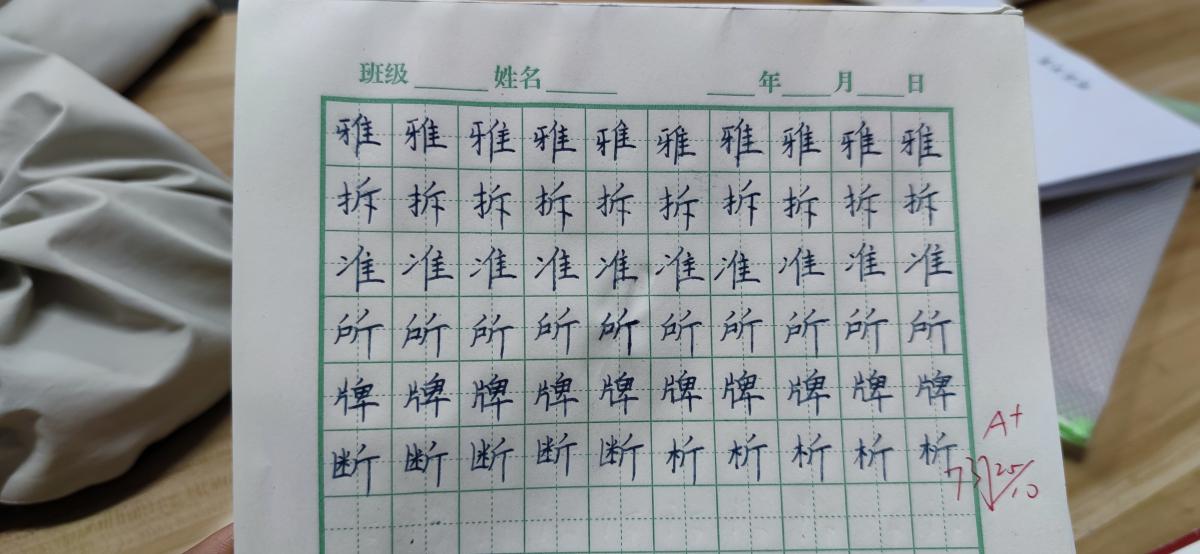 班级 姓名 年 月 日
雅雅雅雅雅雅雅雅雅雅
拆拆拆拆拆拆拆拆拆拆
准准准准准准准准准准
所所所所所所所所所所
牌牌牌牌牌牌牌牌牌牌
断断断断断析析析析析
A+
25/10